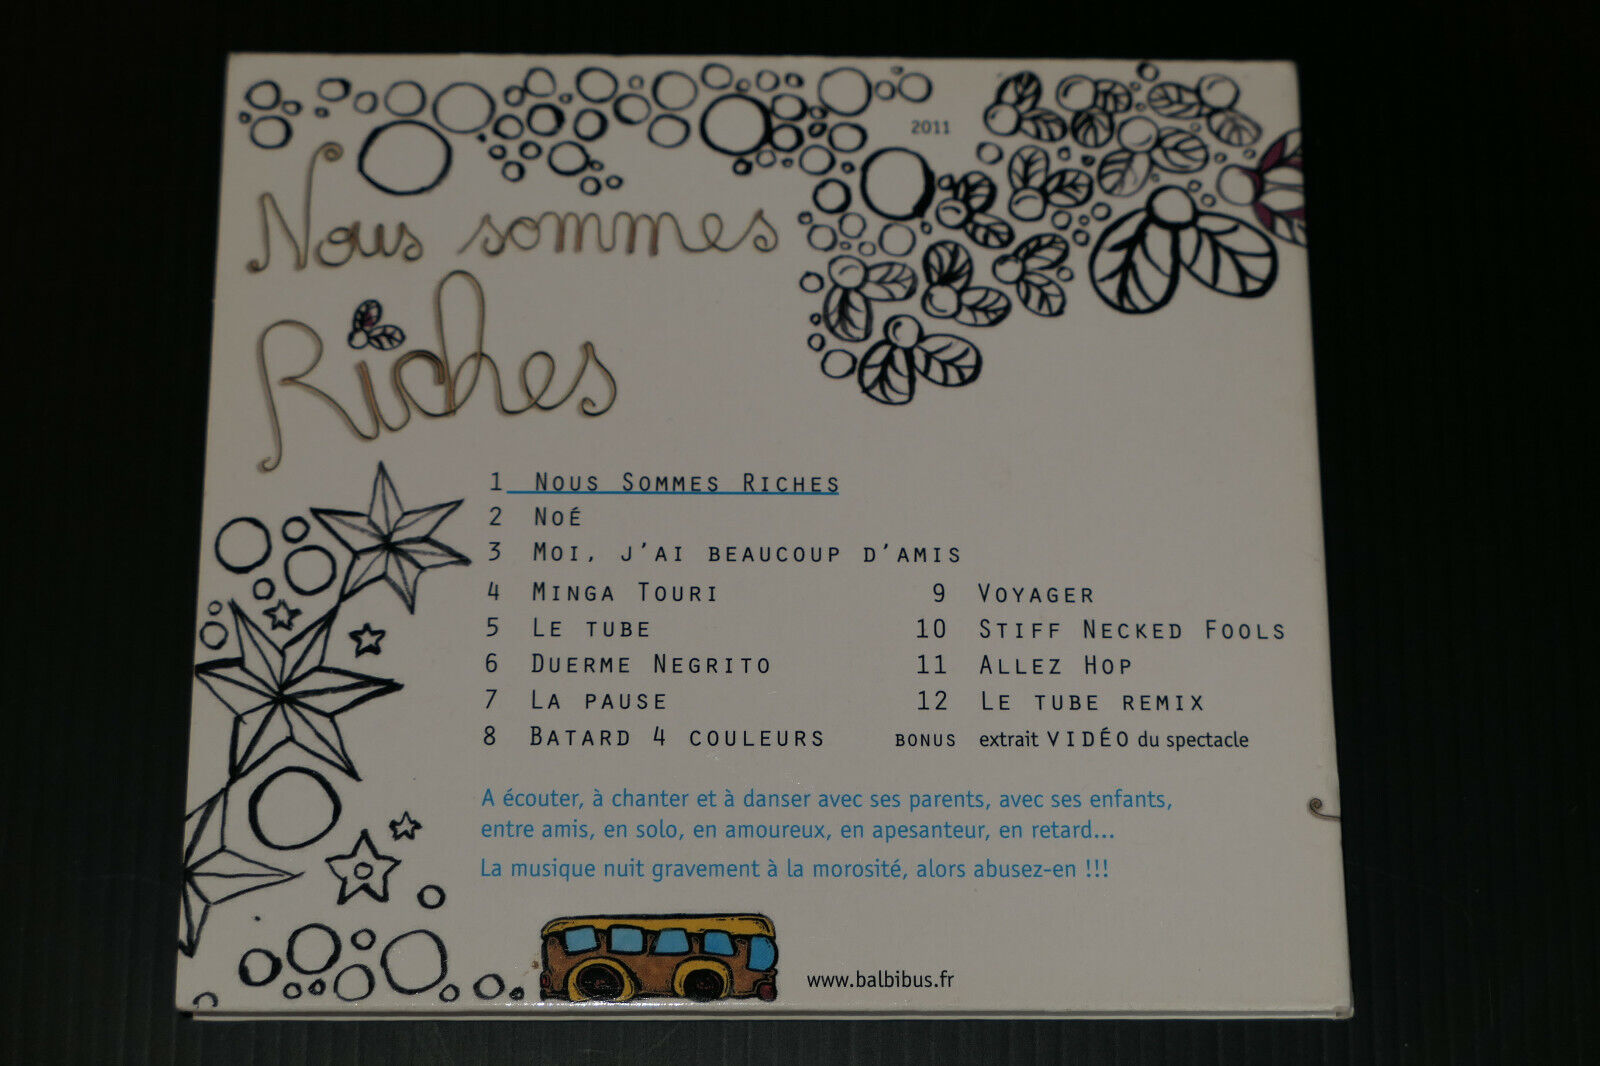 2011
Nous sommes
Riches
1 NOUS SOMMES RICHES
2 NOÉ
3 MOI, J'AI BEAUCOUP D'AMIS
4 MINGA TOURI
5 LE TUBE
6 DUERME NEGRITO
7 LA PAUSE
8 BATARD 4 COULEURS
9 VOYAGER
10 STIFF NECKED FOOLS
11 ALLEZ HOP
12 LE TUBE REMIX
BONUS extrait VIDÉO du spectacle
A écouter, à chanter et à danser avec ses parents, avec ses enfants,
entre amis, en solo, en amoureux, en apesanteur, en retard...
La musique nuit gravement à la morosité, alors abusez-en !!!
www.balbibus.fr